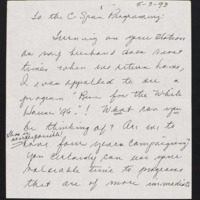 5-3-93
To the C-Span Programming:
Turning on your station
as my husband does most
times when we return home,
I was appalled to see a
program "Run for the White
House '96"! What can you
be thinking of? Are we to
have four years campaigning?
You certainly can use your
valuable time to programs
that are of more immediate